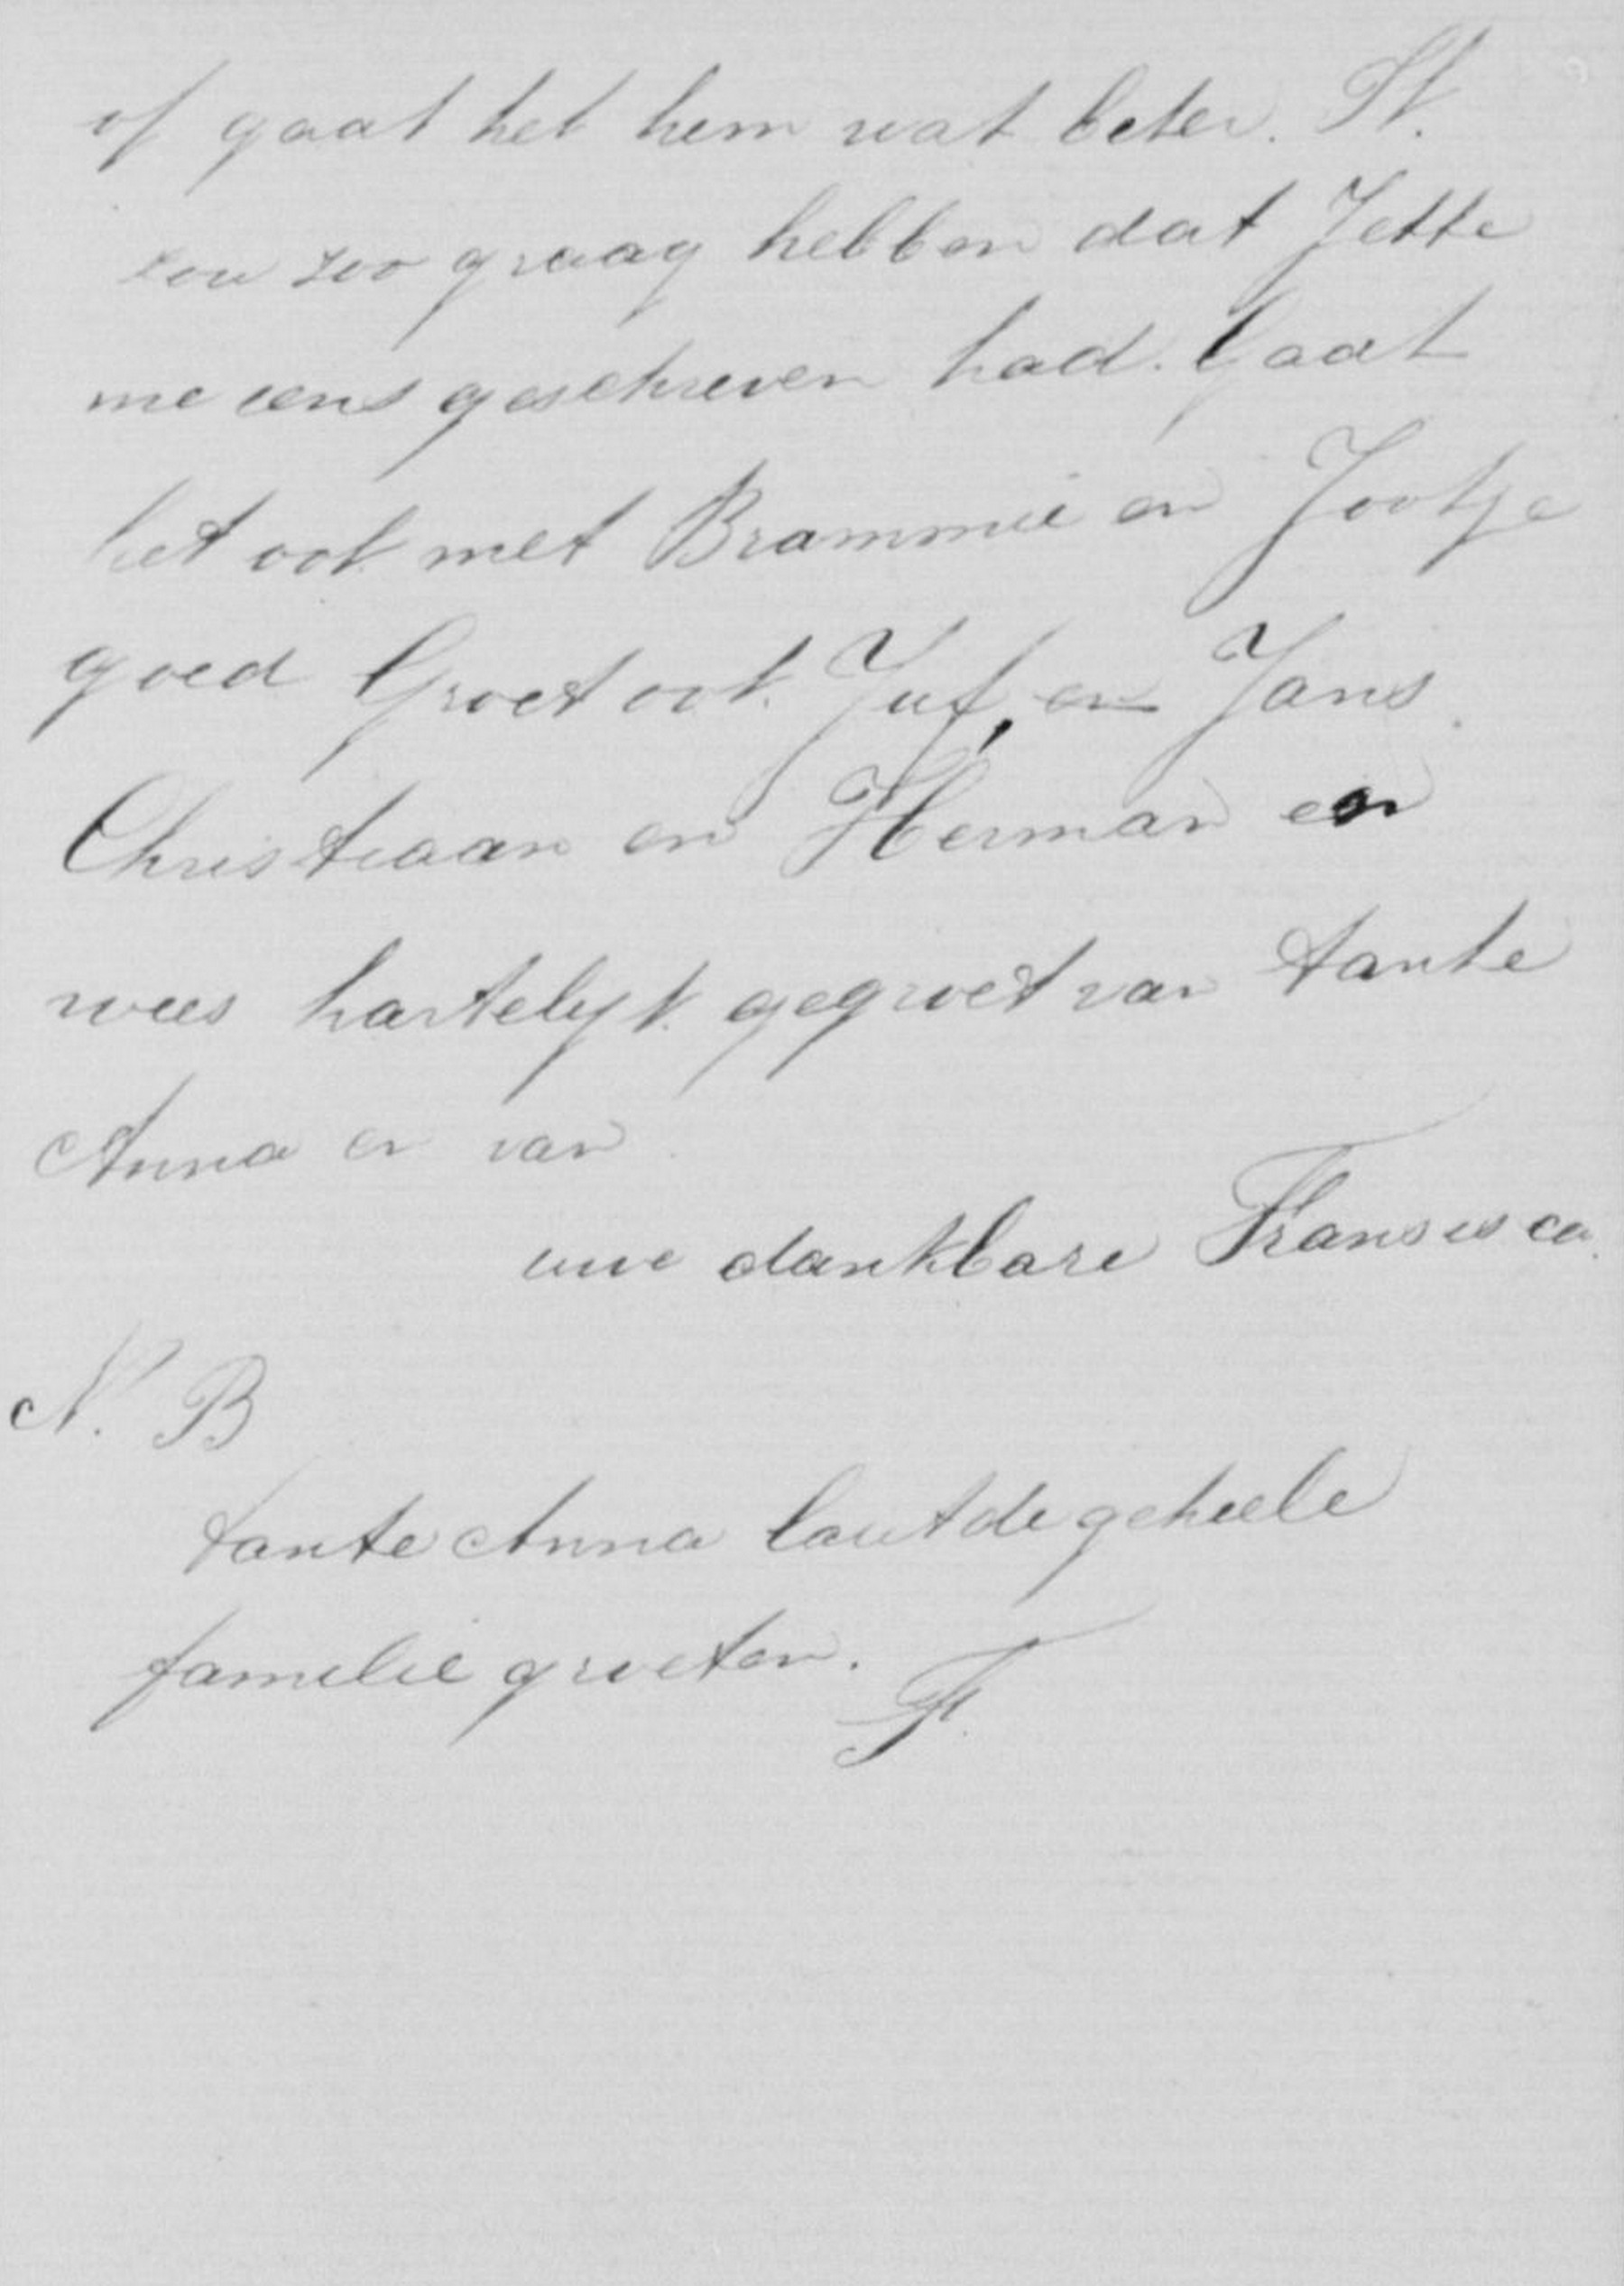 of gaat het hem wat beter. Ik
zou zoo graag hebben dat Jette
me eens geschreven had. Gaat
het ook met Brammie en Jootje
goed Groet ook Juf, en Jans
Christiaan en Herman en
wees hartelijk gegroet van tante
Anna en van
uwe dankbare Fransisca.
N. B
tante Anna laat de geheele
familie groeten. F.